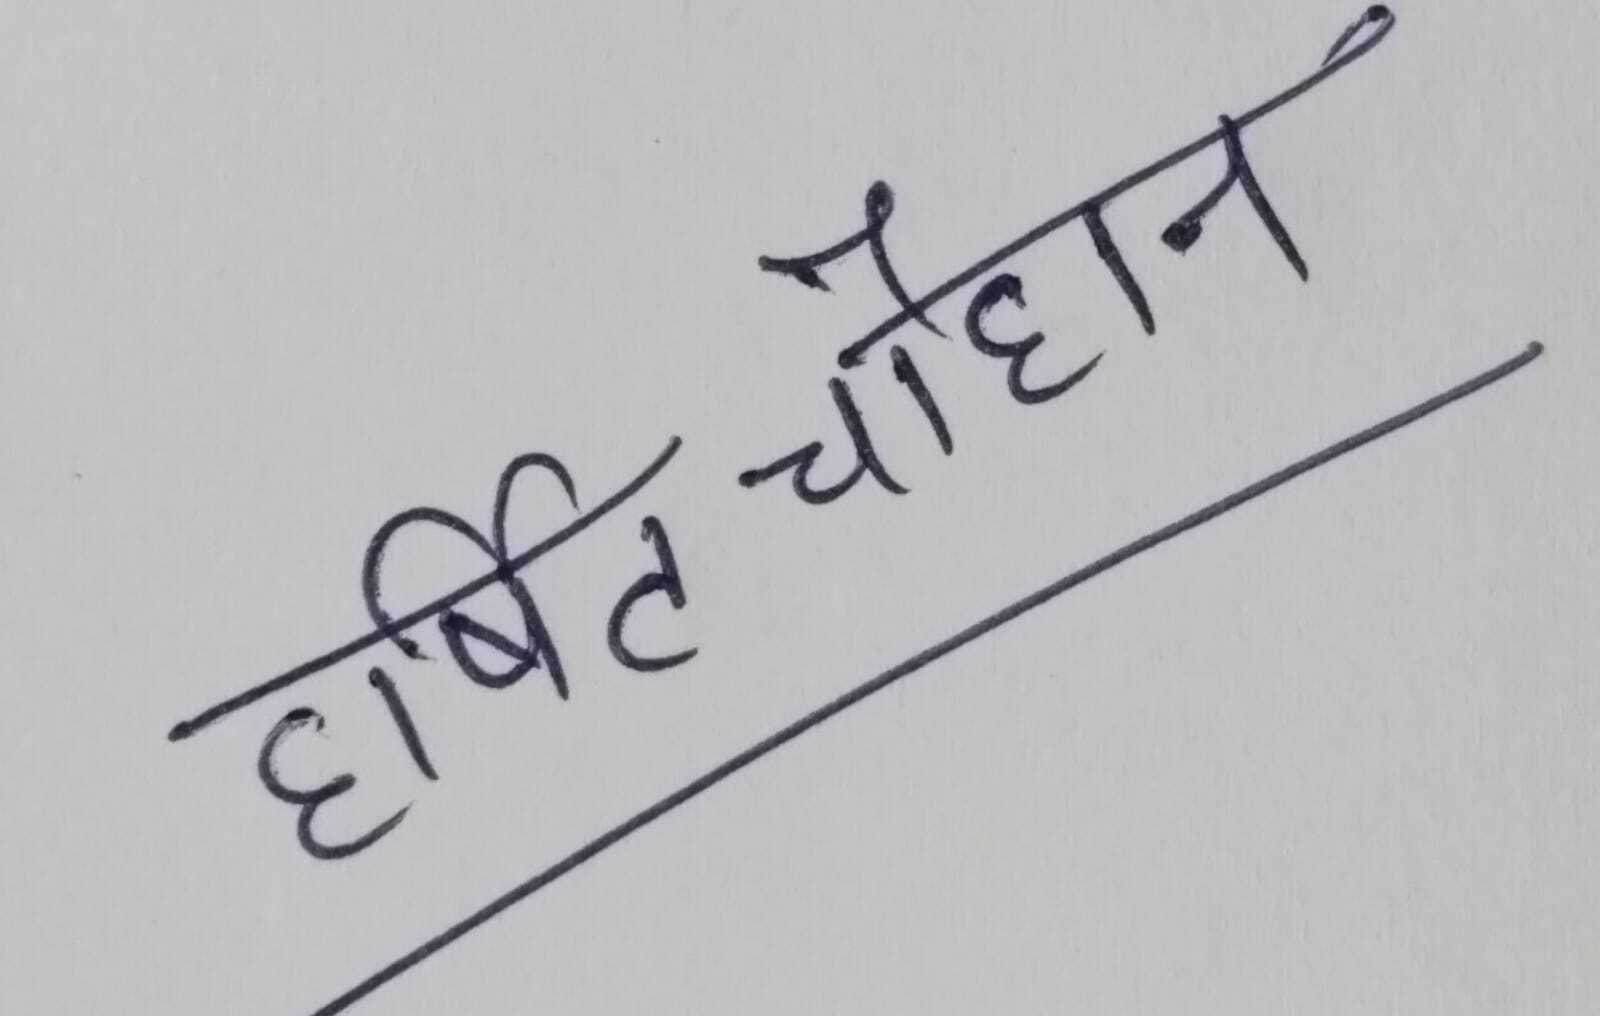 हर्षिट चौहान